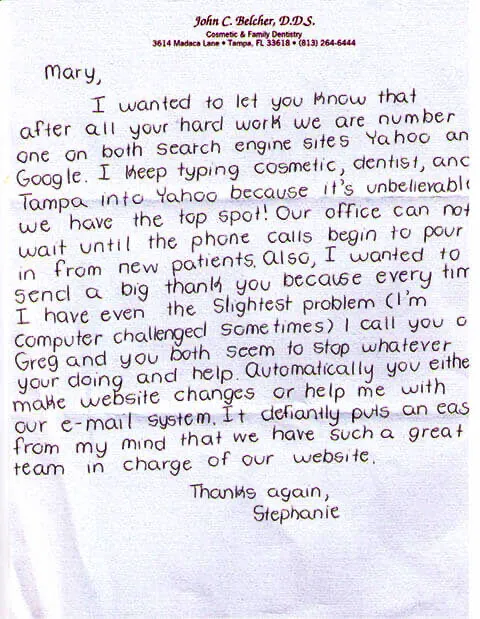 John C. Belcher, D.D.S.
Cosmetic & Family Dentistry
3614 Madaca Lane • Tampa, FL 33618 • (813) 264-6444
Mary,
I wanted to let you know that
after all your hard work we are number
one on both search engine sites Yahoo an
Google. I keep typing cosmetic, dentist, and
Tampa into Yahoo because it's unbelievable
we have the top spot! Our office can not
wait until the phone calls begin to pour
in from new patients. Also, I wanted to
send a big thank you because every tim
I have even the slightest problem (I'm
computer challenged sometimes) I call you o
Greg and you both seem to stop whatever
your doing and help. Automatically you eithe
make website changes or help me with
our e-mail system. It defiantly puts an eas
from my mind that we have such a great
team in charge of our website.
Thanks again,
Stephanie